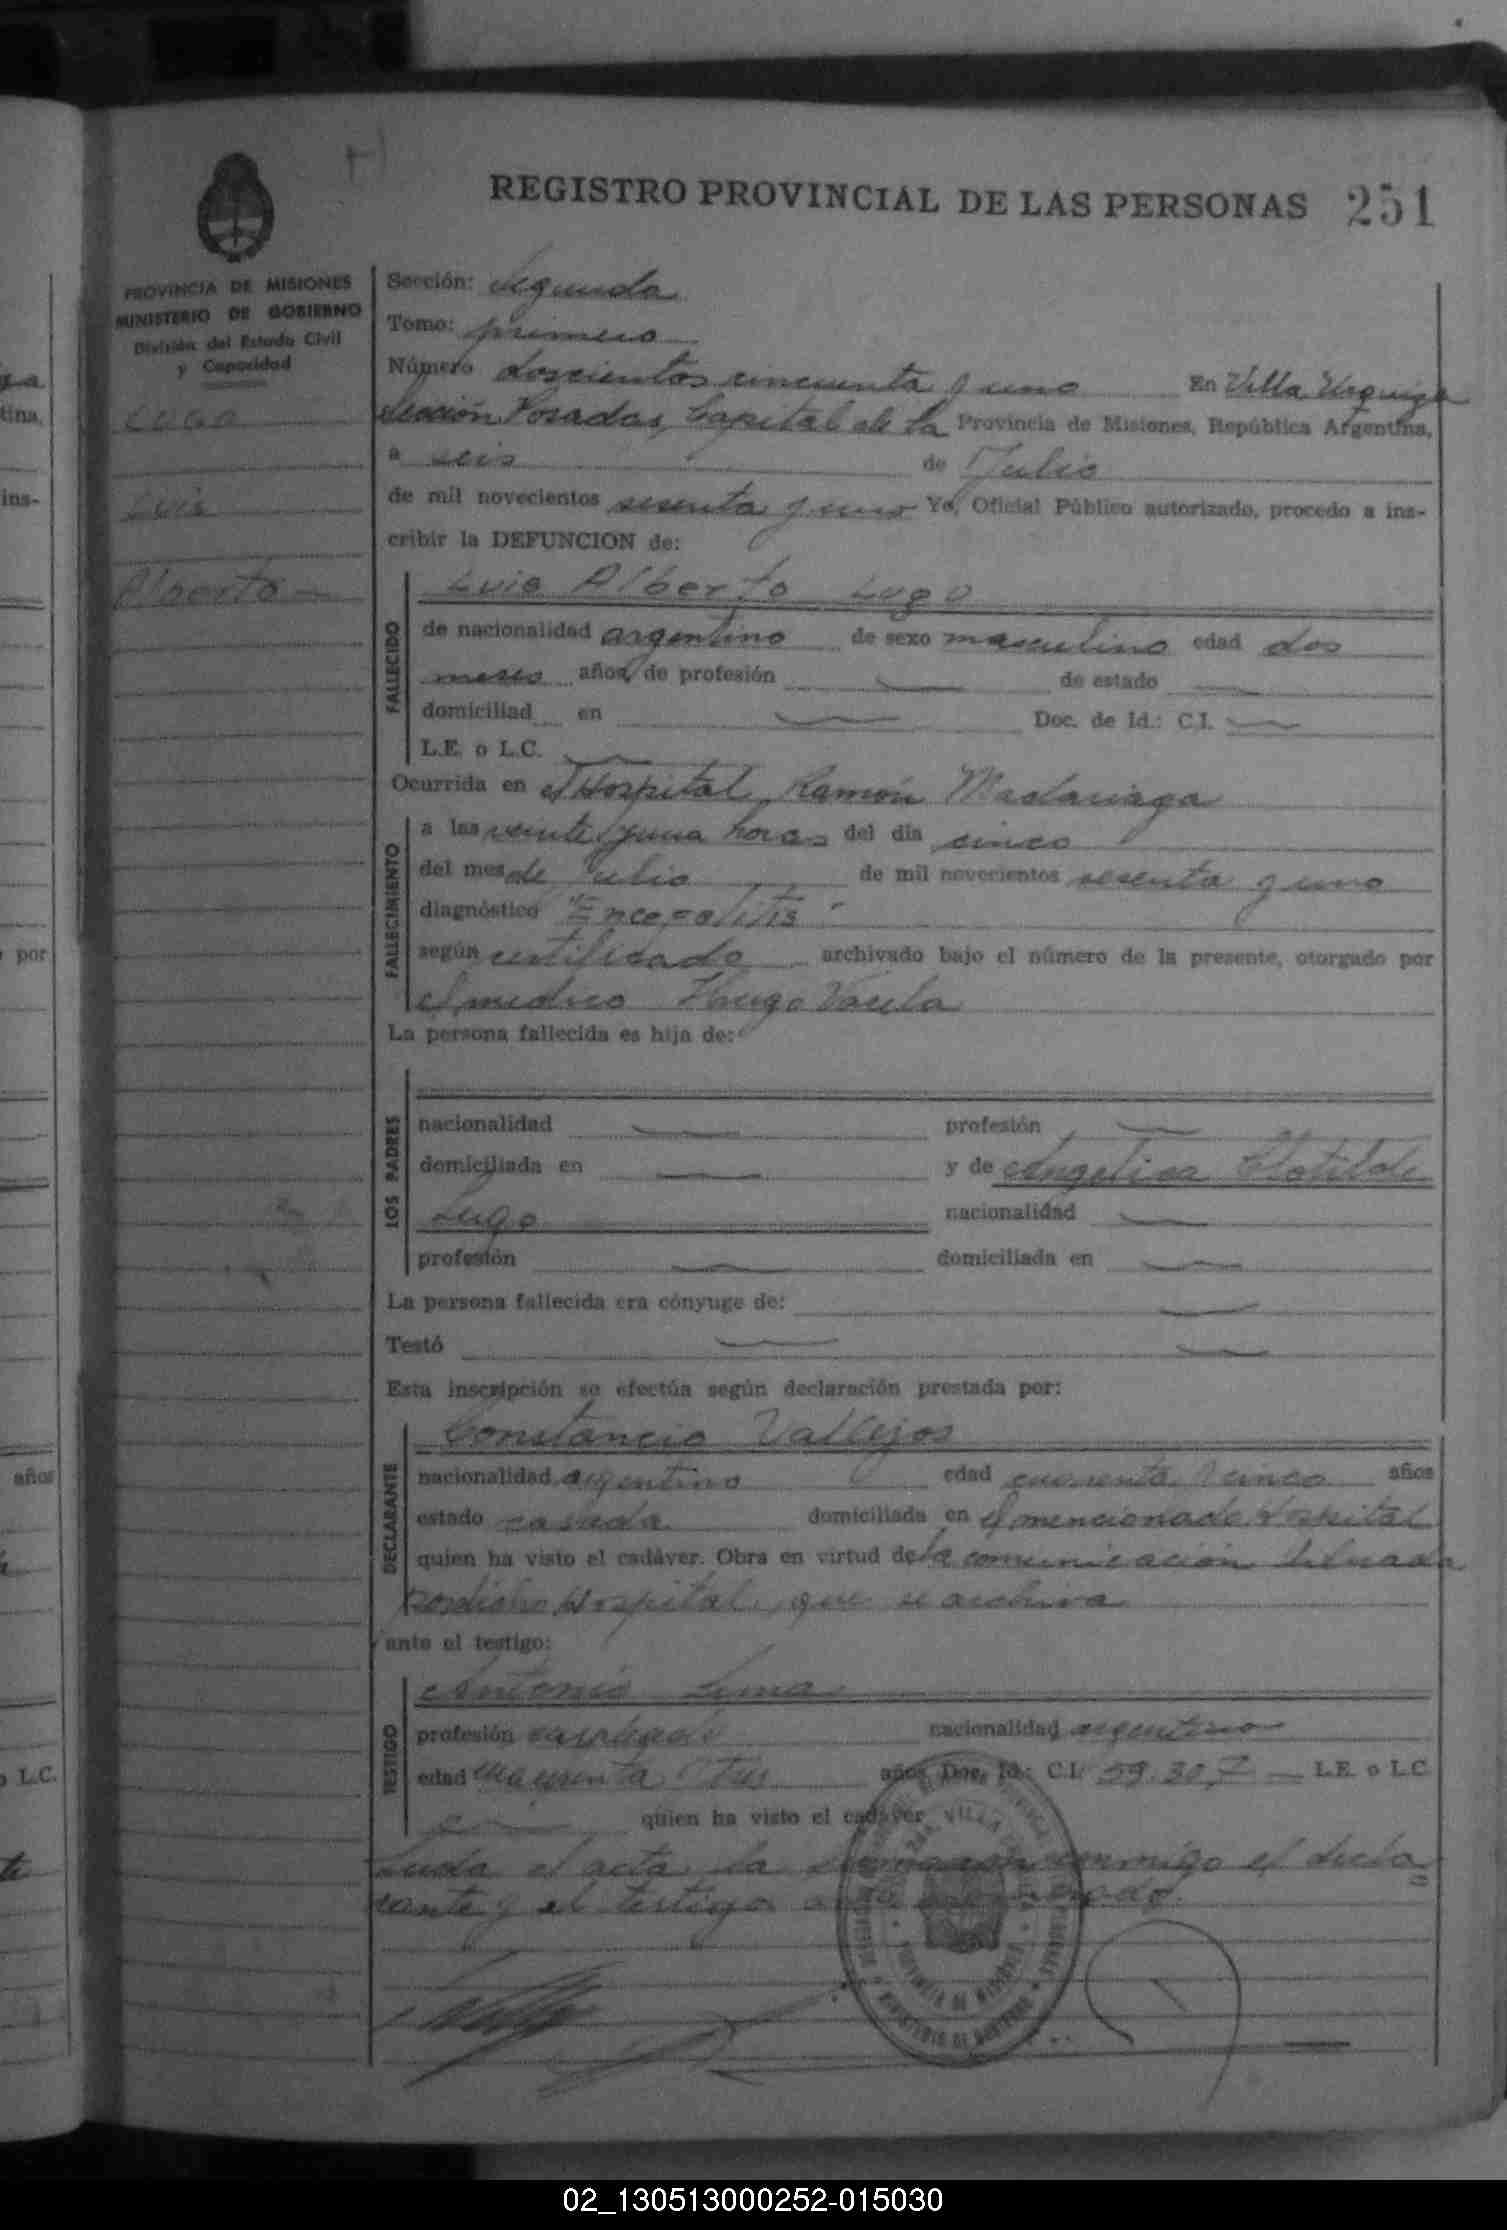 REGISTRO PROVINCIAL DE LAS PERSONAS 251
PROVINCIA DE MISIONES
MINISTERIO DE GOBIERNO
División del Estado Civil
y Capacidad
Lugo
Luis
Alberto
Sección: Segunda
Tomo: primero
Número doscientos cincuenta y uno En Villa Urquiza
Sección Posadas, Capital de la Provincia de Misiones, República Argentina,
a seis de Julio
de mil novecientos sesenta y uno Yo, Oficial Público autorizado, procedo a ins-
cribir la DEFUNCION de:
FALLECIDO
Luis Alberto Lugo
de nacionalidad argentino de sexo masculino edad dos
meses años de profesión de estado
domiciliad en Doc. de Id.: C.I.
L.E. o L.C.
Ocurrida en el Hospital Ramón Madariaga
FALLECIMIENTO
a las veinte y una horas del día cinco
del mes de Julio de mil novecientos sesenta y uno
diagnóstico "Encefalitis"
según certificado archivado bajo el número de la presente, otorgado por
el medico Hugo Varela
La persona fallecida es hija de:
LOS PADRES
nacionalidad profesión
domiciliada en y de Angelica Clotilde
Lugo nacionalidad
profesión domiciliada en
La persona fallecida era cónyuge de:
Testó
Esta inscripción se efectúa según declaración prestada por:
DECLARANTE
Constancio Vallejos
nacionalidad argentino edad cuarenta y cinco años
estado casado domiciliada en el mencionado Hospital
quien ha visto el cadáver. Obra en virtud de la comunicación librada
por dicho Hospital, que se archiva
ante el testigo:
TESTIGO
Antonio Luna
profesión empleado nacionalidad argentino
edad cuarenta y tres años Doc. Id.: C.I. 59.307 L.E. o L.C.
quien ha visto el cadáver
Leida el acta, la conmigo el decla
rante y el testigo
PROVINCIA DE MISIONES
MINISTERIO DE GOBIERNO
ina.
ins-
por
años
o L.C.
02_130513000252-015030